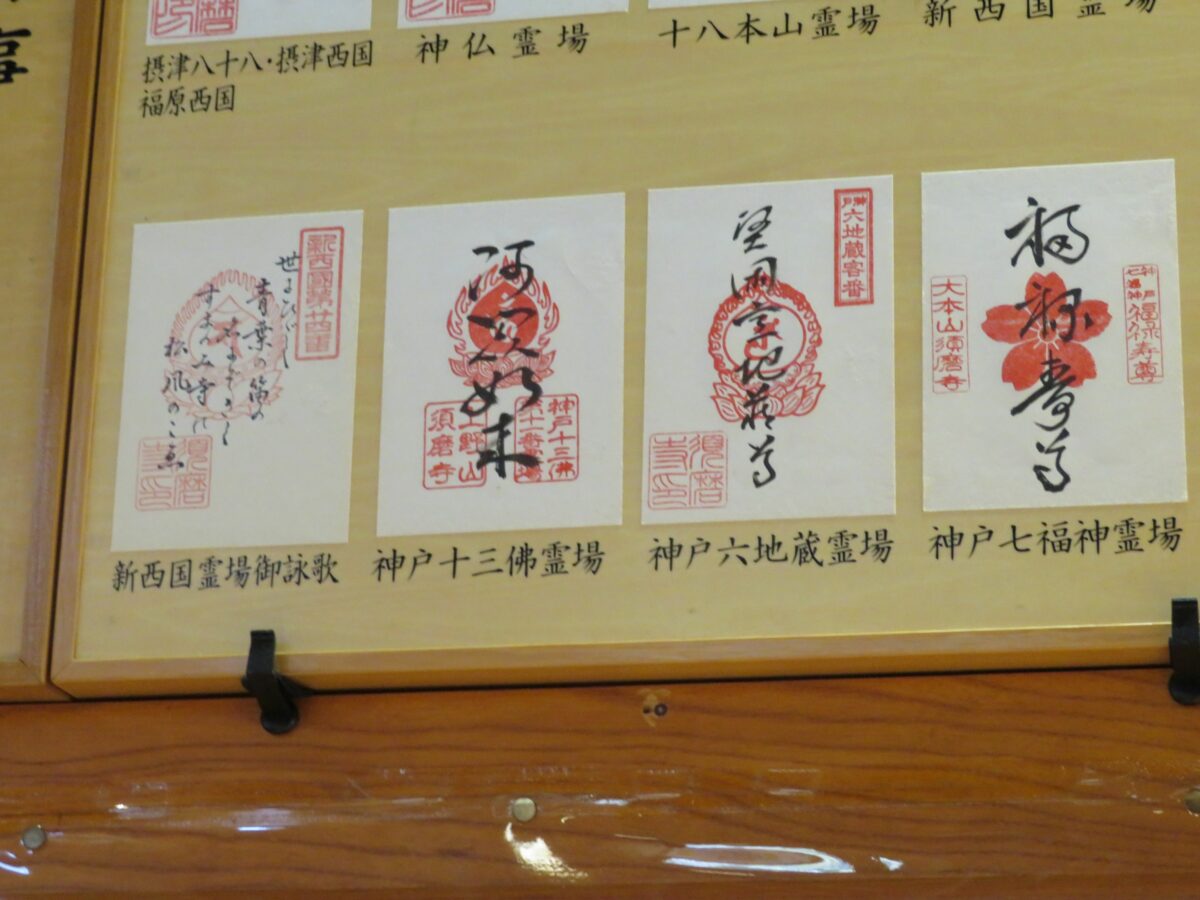 摂津八十八・摂津西国
福原西国
神仏霊場
十八本山霊場
新西国霊場
新西國第廿四番
青葉の笛の
すまのみ寺の
松風のこゑ
須磨
寺印
新西国霊場御詠歌
如来
神戸十三佛
第十一番霊場
上野山
須磨寺
神戸十三佛霊場
神戸六地蔵客番
堅固意地蔵尊
須磨
寺印
神戸六地蔵霊場
神戸
七福神
福禄寿尊
福禄寿尊
大本山須磨寺
神戸七福神霊場